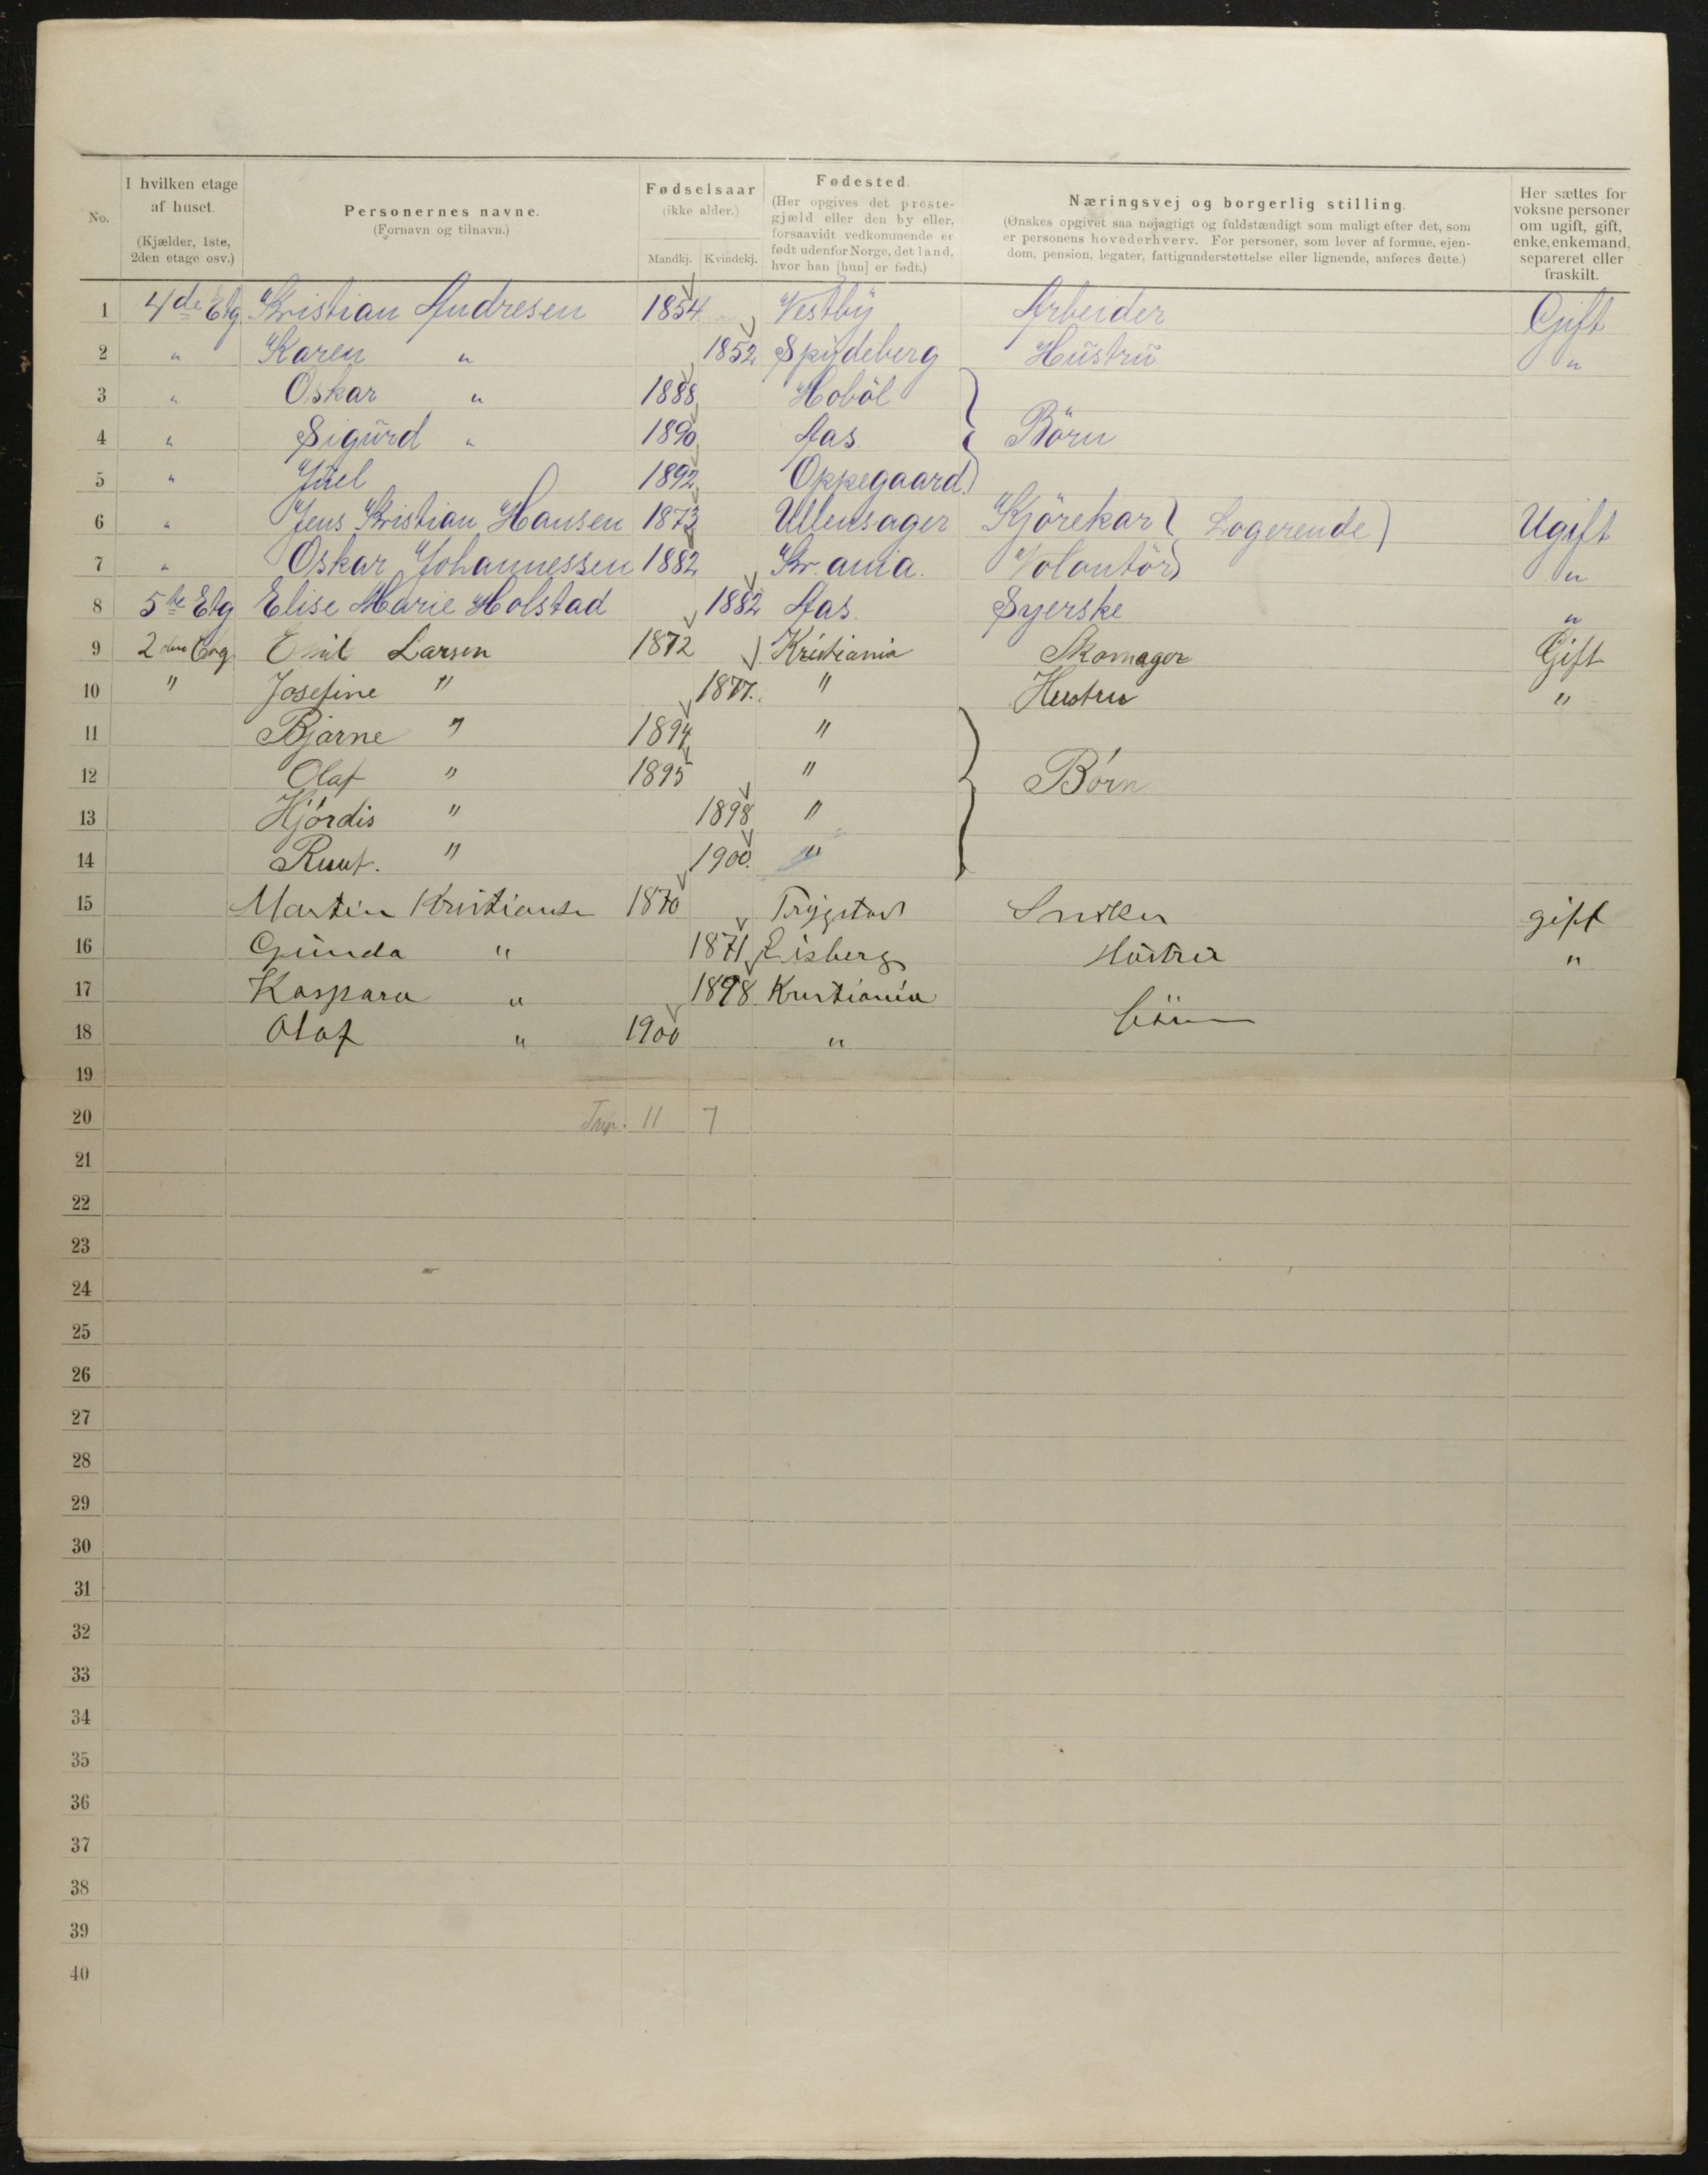 No.
I hvilken etage af huset. (Kjælder, 1ste, 2den etage osv.)
Personernes navne. (Fornavn og tilnavn.)
Fødselsaar (ikke alder.) Mandkj. Kvindekj.
Fødested. (Her opgives det prestegjæld eller den by eller, forsaavidt vedkommende er født udenfor Norge, det land, hvor han [hun] er født.)
Næringsvej og borgerlig stilling.
(Ønskes opgivet saa nøjagtigt og fuldstændigt som muligt efter det, som er personens hovederhverv. For personer, som lever af formue, ejendom, pension, legater, fattigunderstøttelse eller lignende, anføres dette.)
Her sættes for voksne personer om ugift, gift, enke, enkemand, separeret eller fraskilt.
1 4de Etg. Kristian Andresen 1854 Vestby Arbeider Gift
2 " Karen " 1852 Spydeberg Hustru "
3 " Oskar " 1888 Hobøl
4 " Sigurd " 1890 Aas Börn
5 " Juel 1892 Oppegaard
6 " Jens Kristian Hansen 1873 Ullensager Kjörekar ( Logerende ) Ugift
7 " Oskar Johannessen 1882 Kr.ania. Volontör "
8 5te Etg Elise Marie Holstad 1882 Aas. Syerske "
9 2den Etg. Emil Larsen 1872 Kristiania Skomager Gift
10 " Josefine " 1877. " Hustru "
11 Bjarne " 1894 "
12 Olaf " 1895 " Børn
13 Hjórdis " 1898 "
14 Ruut. " 1900. "
15 Martin Kristiansen 1870 Trygstad Sneker gift
16 Gunda " 1871 Eisberg Hustru "
17 Kaspara " 1898 Kristiania
18 Olaf " 1900 " börn
19
20 11 7
21
22
23
24
25
26
27
28
29
30
31
32
33
34
35
36
37
38
39
40